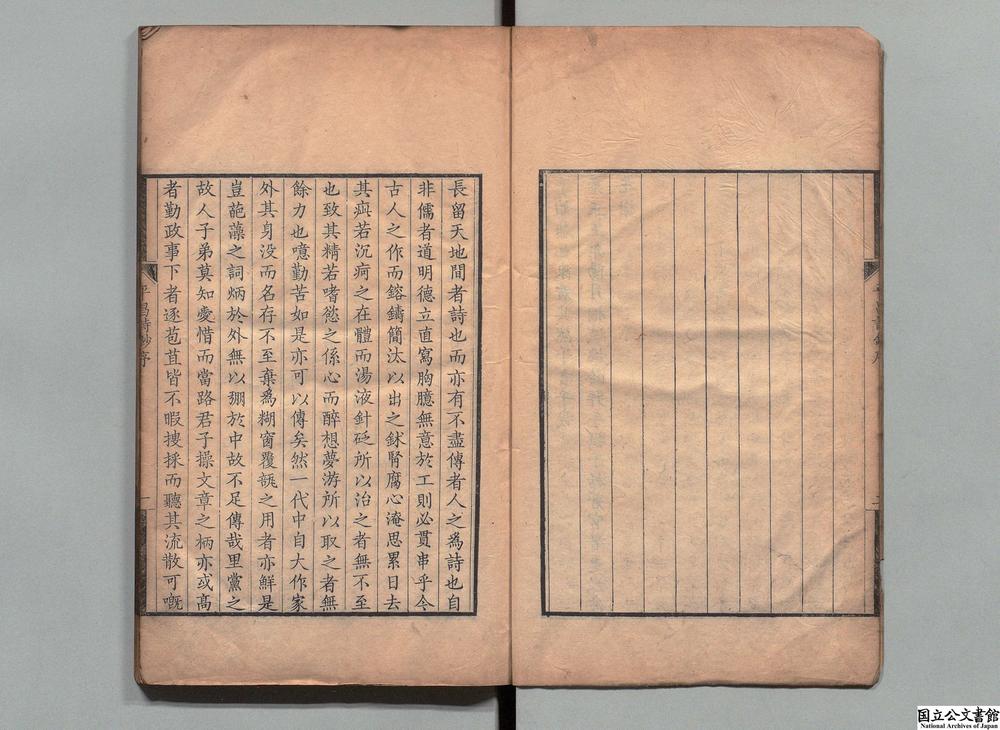 長留天地間者詩也而亦有不盡傳者人之為詩也自
非儒者道明德立直寫胸臆無意於工則必貫串乎今
古人之作而鎔鑄簡汰以出之鉥腎腐心淹思累日去
其疵若沉疴之在體而湯液針砭所以治之者無不至
也致其精若嗜慾之係心而醉想夢游所以取之者無
餘力也噫勤苦如是亦可以傳矣然一代中自大作家
外其身没而名存不至棄為糊窗覆瓿之用者亦鮮是
豈葩藻之詞炳於外無以掤於中故不足傳哉里黨之
故人子弟莫知愛惜而當路君子操文章之柄亦或高
者勤政事下者逐苞苴皆不暇搜採而聽其流散可嘅
平昌詩鈔序
一
二
国立公文書館
National Archives of Japan